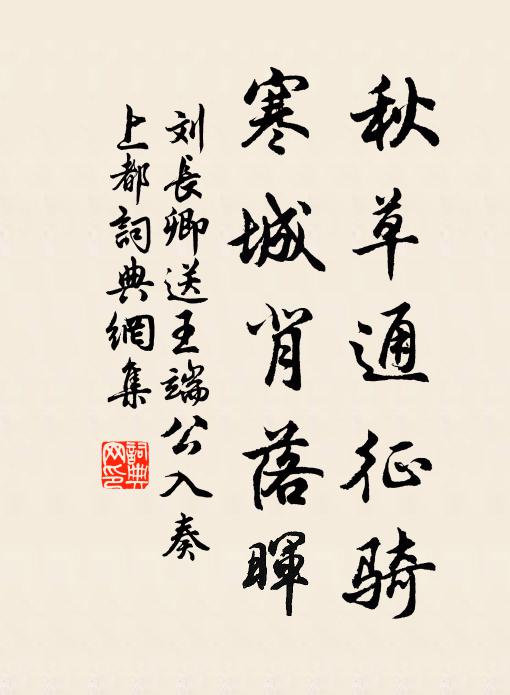 秋草通征骑
寒城背落暉
刘長卿送王端公入奏
上都詞典網集
詞典网印